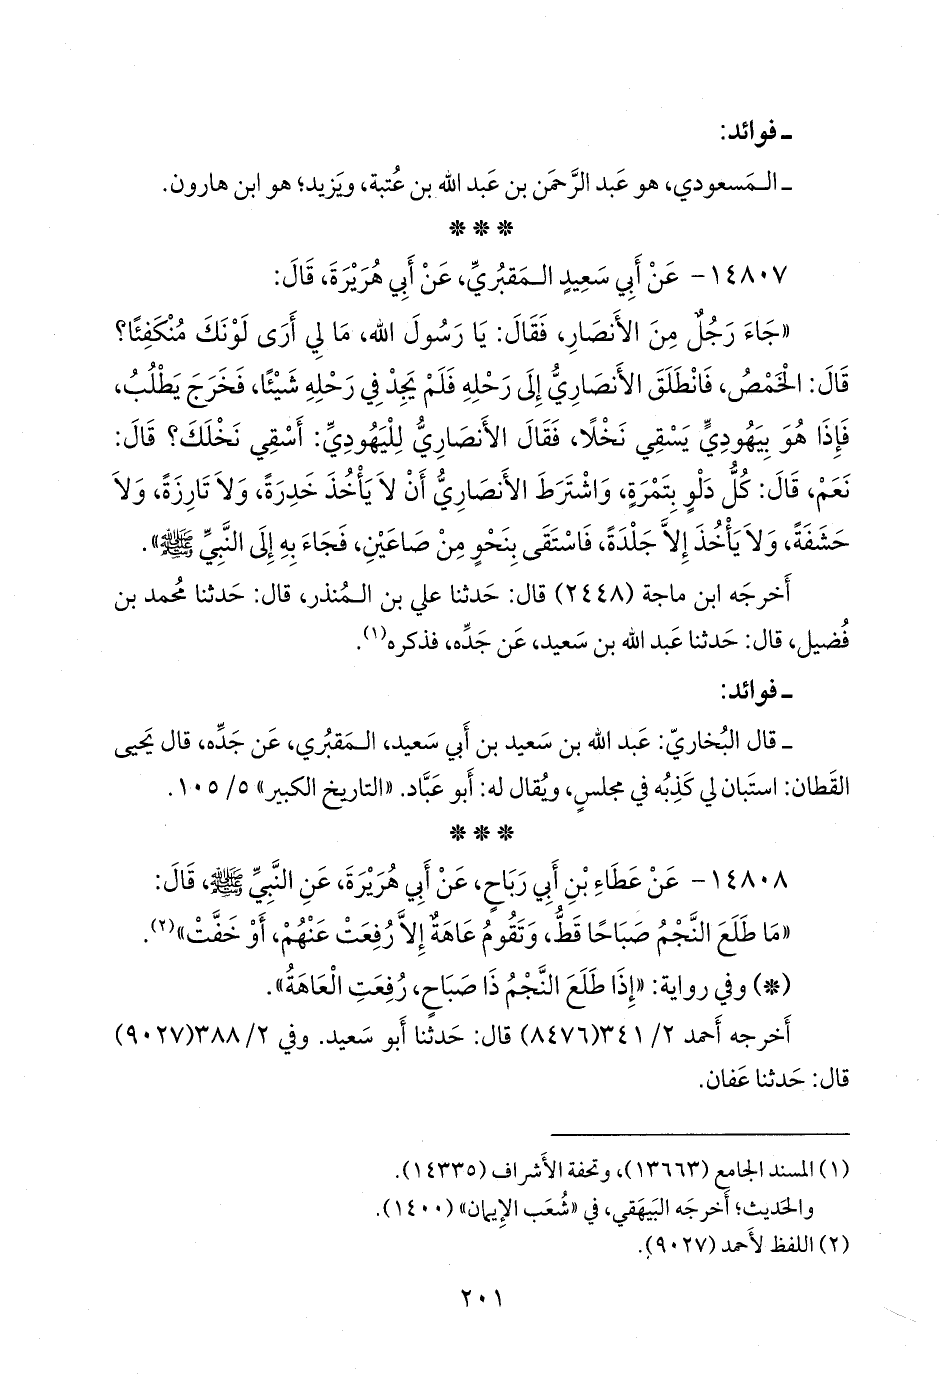 ـ فوائد:
ـ الـمَسعودي، هو عَبد الرَّحمَن بن عَبد الله بن عُتبة، ويَزيد؛ هو ابن هارون.
* * *
١٤٨٠٧- عَنْ أَبِي سَعِيدٍ الـمَقبُرِيِّ، عَنْ أَبِي هُرَيْرَةَ، قَالَ:
«جَاءَ رَجُلٌ مِنَ الأَنصَارِ، فَقَالَ: يَا رَسُولَ الله، مَا لِي أَرَى لَوْنَكَ مُنْكَفِئًا؟
قَالَ: الْخَمْصُ، فَانْطَلَقَ الأَنصَارِيُّ إِلَى رَحْلِهِ فَلَمْ يَجِدْ فِي رَحْلِهِ شَيْئًا، فَخَرَجَ يَطْلُبُ،
فَإِذَا هُوَ بِيَهُودِيٍّ يَسْقِي نَخْلًا، فَقَالَ الأَنصَارِيُّ لِلْيَهُودِيِّ: أَسْقِي نَخْلَكَ؟ قَالَ:
نَعَمْ، قَالَ: كُلُّ دَلْوٍ بِتَمْرَةٍ، وَاشْتَرَطَ الأَنصَارِيُّ أَنْ لاَ يَأْخُذَ خَدِرَةً، وَلاَ تَارِزَةً، وَلاَ
حَشَفَةً، وَلاَ يَأْخُذَ إِلاَّ جَلْدَةً، فَاسْتَقَى بِنَحْوٍ مِنْ صَاعَيْنِ، فَجَاءَ بِهِ إِلَى النَّبِيِّ ﷺ».
أَخرجَه ابن ماجة (٢٤٤٨) قال: حَدثنا علي بن الـمُنذر، قال: حَدثنا محُمد بن
فُضيل، قال: حَدثنا عَبد الله بن سَعيد، عَن جَدِّه، فذكره(١).
ـ فوائد:
ـ قال البُخاريّ: عَبد الله بن سَعيد بن أَبي سَعيد، الـمَقبُري، عَن جَدِّه، قال يَحيى
القَطان: استَبان لي كَذِبُه في مجلسٍ، ويُقال له: أَبو عَبَّاد. «التاريخ الكبير» ٥/ ١٠٥.
* * *
١٤٨٠٨- عَنْ عَطَاءِ بْنِ أَبِي رَبَاحٍ، عَنْ أَبِي هُرَيْرَةَ، عَنِ النَّبِيِّ ﷺ، قَالَ:
«مَا طَلَعَ النَّجْمُ صَبَاحًا قَطُّ، وَتَقُومُ عَاهَةٌ إِلاَّ رُفِعَتْ عَنْهُمْ، أَوْ خَفَّتْ»(٢).
(*) وفي رواية: «إِذَا طَلَعَ النَّجْمُ ذَا صَبَاحٍ، رُفِعَتِ الْعَاهَةُ».
أَخرجه أَحمد ٢/ ٣٤١(٨٤٧٦) قال: حَدثنا أَبو سَعيد. وفي ٢/ ٣٨٨(٩٠٢٧)
قال: حَدثنا عَفان.
(١) المسند الجامع (١٣٦٦٣)، وتحفة الأَشراف (١٤٣٣٥).
والحَديث؛ أَخرجَه البَيهَقي، في «شُعَب الإِيمان» (١٤٠٠).
(٢) اللفظ لأَحمد (٩٠٢٧).
٢٠١